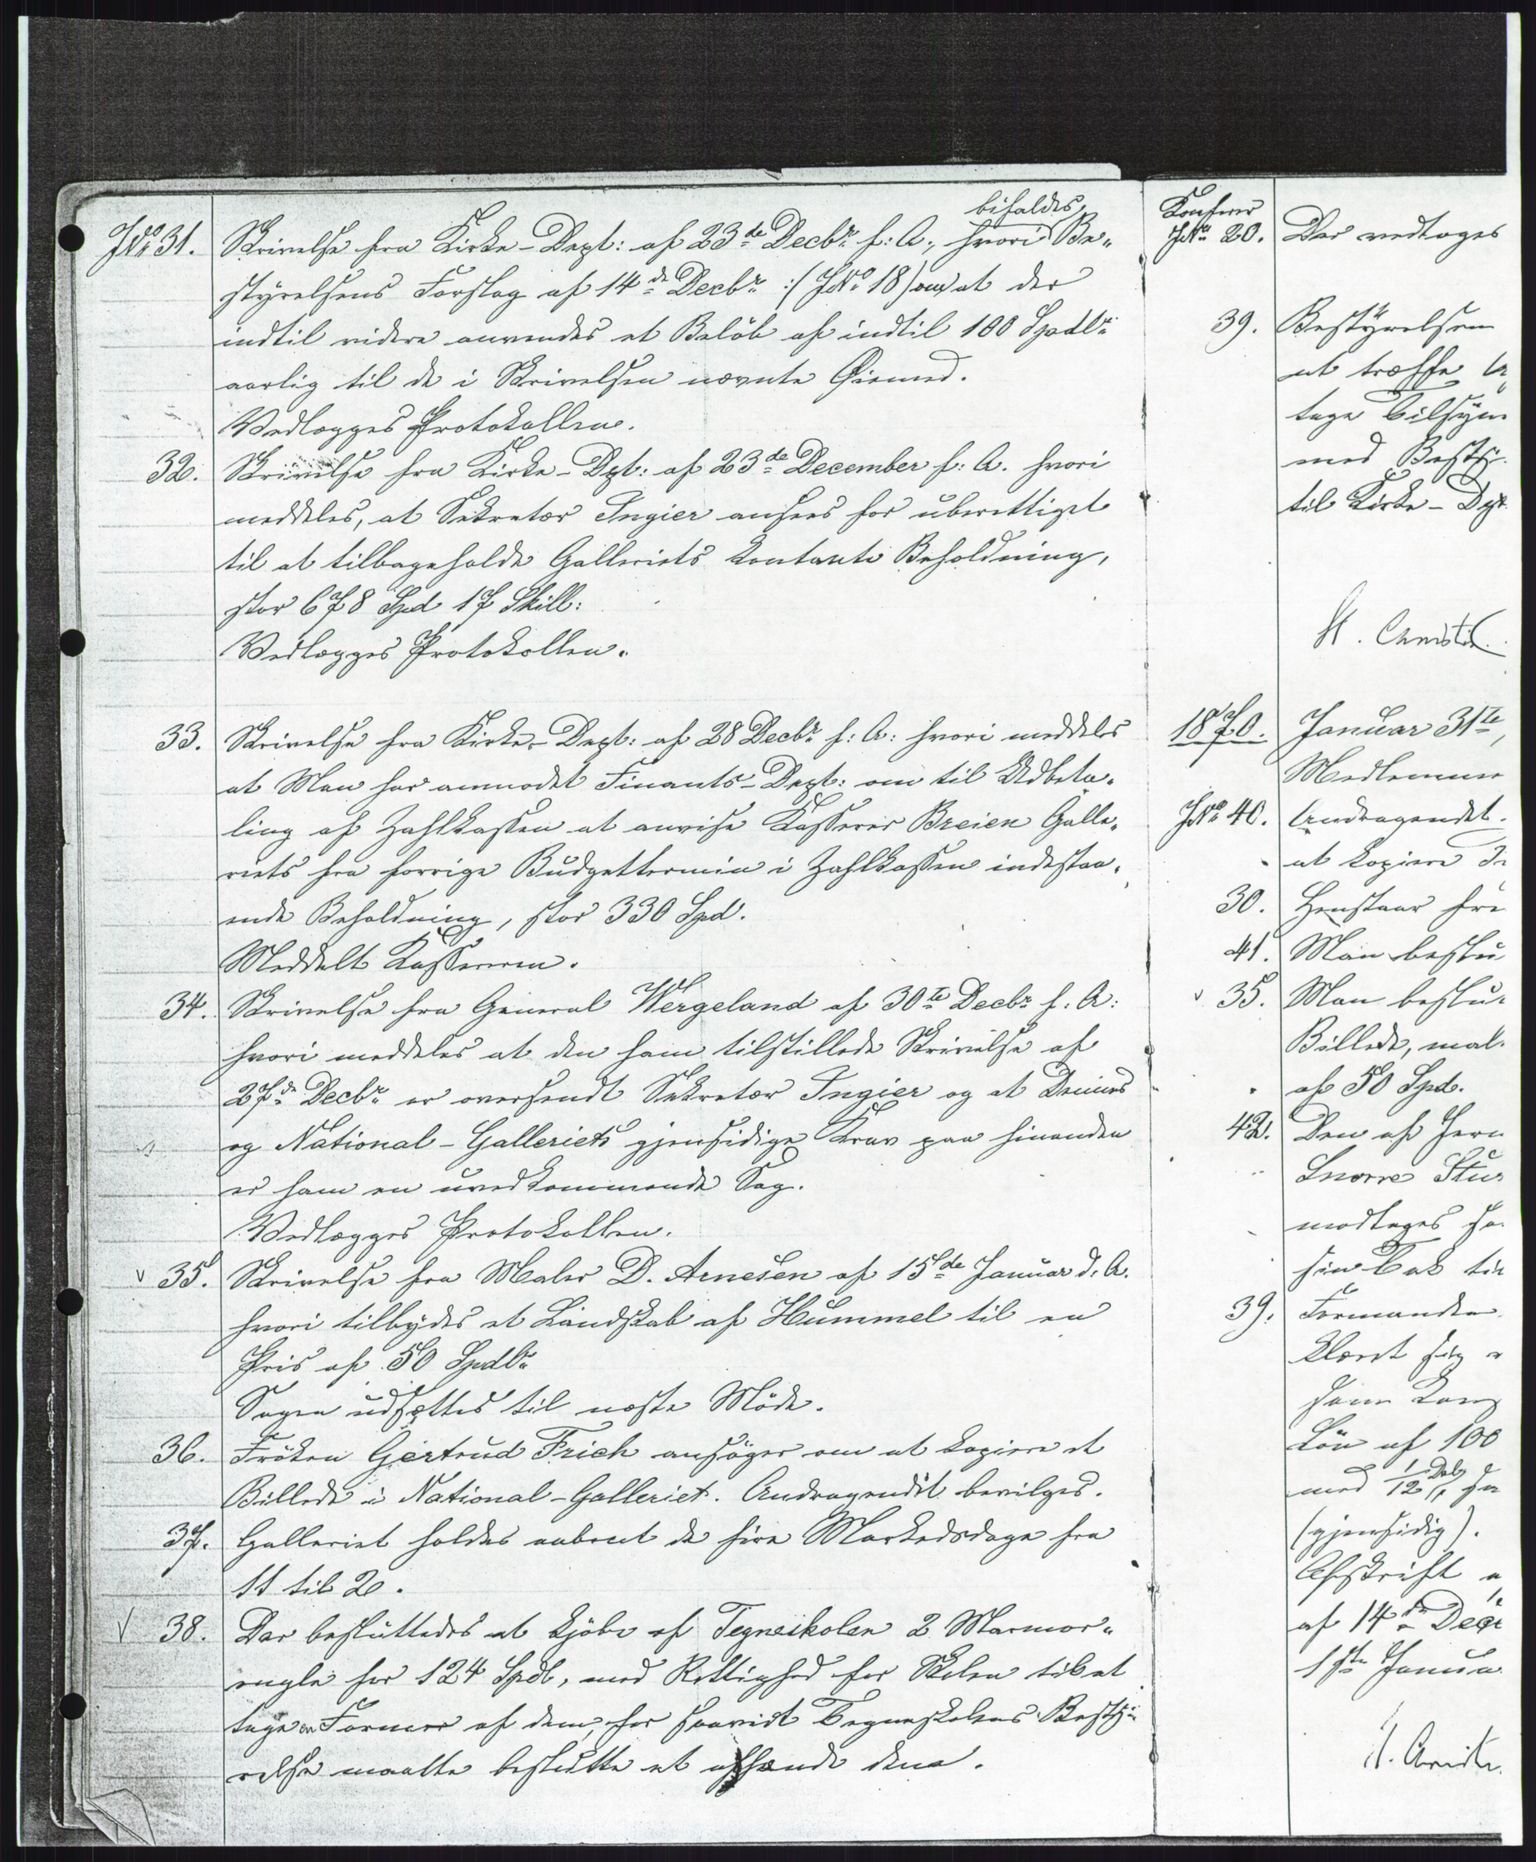 JNo 31. Skrivelse fra Kirke-Dept: af 23de Decbr f: A., hvori bifaldes Be-
styrelsens Forslag af 14de Decbr :(JNo 18) om at der
indtil videre anvendes et Beløb af indtil 100 Spdlr
aarlig til de i Skrivelsen nævnte Øiemed.
Vedlægges Protokollen.
32. Skrivelse fra Kirke-Dpt: af 23de December f: A. hvori
meddeles, at Sekretær Ingier ansees for uberettiget
til at tilbageholde Galleriets Kontante Beholdning,
stor 678 Spd 17 Skill:
Vedlægges Protokollen.
33. Skrivelse fra Kirke-Dept: af 28 Decbr f: A: hvori meddeles
at Man har anmodet Finants-Dept: om til Udbeta-
ling af Zahlkassen at anvise Kasserer Breien Galle-
riets fra forrige Budgettermin i Zahlkassen indestaa-
ende Beholdning, stor 330 Spd.
Meddelt Kassereren.
34. Skrivelse fra General Wergeland af 30te Decbr f: A:
hvori meddeles at den ham tilstillede Skrivelse af
27de Decbr er oversendt Sekretær Ingier og at Dennes
og National-Galleriets gjensidige Krav paa hinanden
er ham en uvedkommende Sag.
Vedlægges Protokollen.
v 35. Skrivelse fra Maler D. Arnesen af 15de Januar d. A.
hvori tilbydes et Landskab af Hummel til en
Pris af 50 Spdlr
Sagen udsættes til næste Möde.
36. Fröken Gertrud Frich ansöger om at kopiere et
Billede i National-Galleriet. Andragendet bevilges.
37. Galleriet holdes aabent de fire Markedsdage fra
11 til 2.
v 38. Der besluttedes at kjöbe af Tegneskolen 2 Marmor-
engle for 124 Spdl, med Rettighed for Skolen til at
tage en Former af dem, for saavidt Tegneskolens Besty-
relse maatte beslutte at afhænde dem.
Konferer
JNo 20. Der vedtoges
39. Bestyrelsen
at træffe
tage Tilsyn
med Besty-
til Kirke-Dpt
H. Christi
1870. Januar 31te,
Medlemmer
JNo 40. Andragendet
at kopiere
30. Henstaar
41. Man beslu
v 35. Man beslu-
Billede, mal-
af 50 Spd.
42. Den af Herr
Snorre Stur
modtages
sin Tak til
39. Formanden
klæret sig
som
Lön af 100
med 1/12 Del,
(gjensidig).
Afskrift
af 14de Dece
1ste Janua